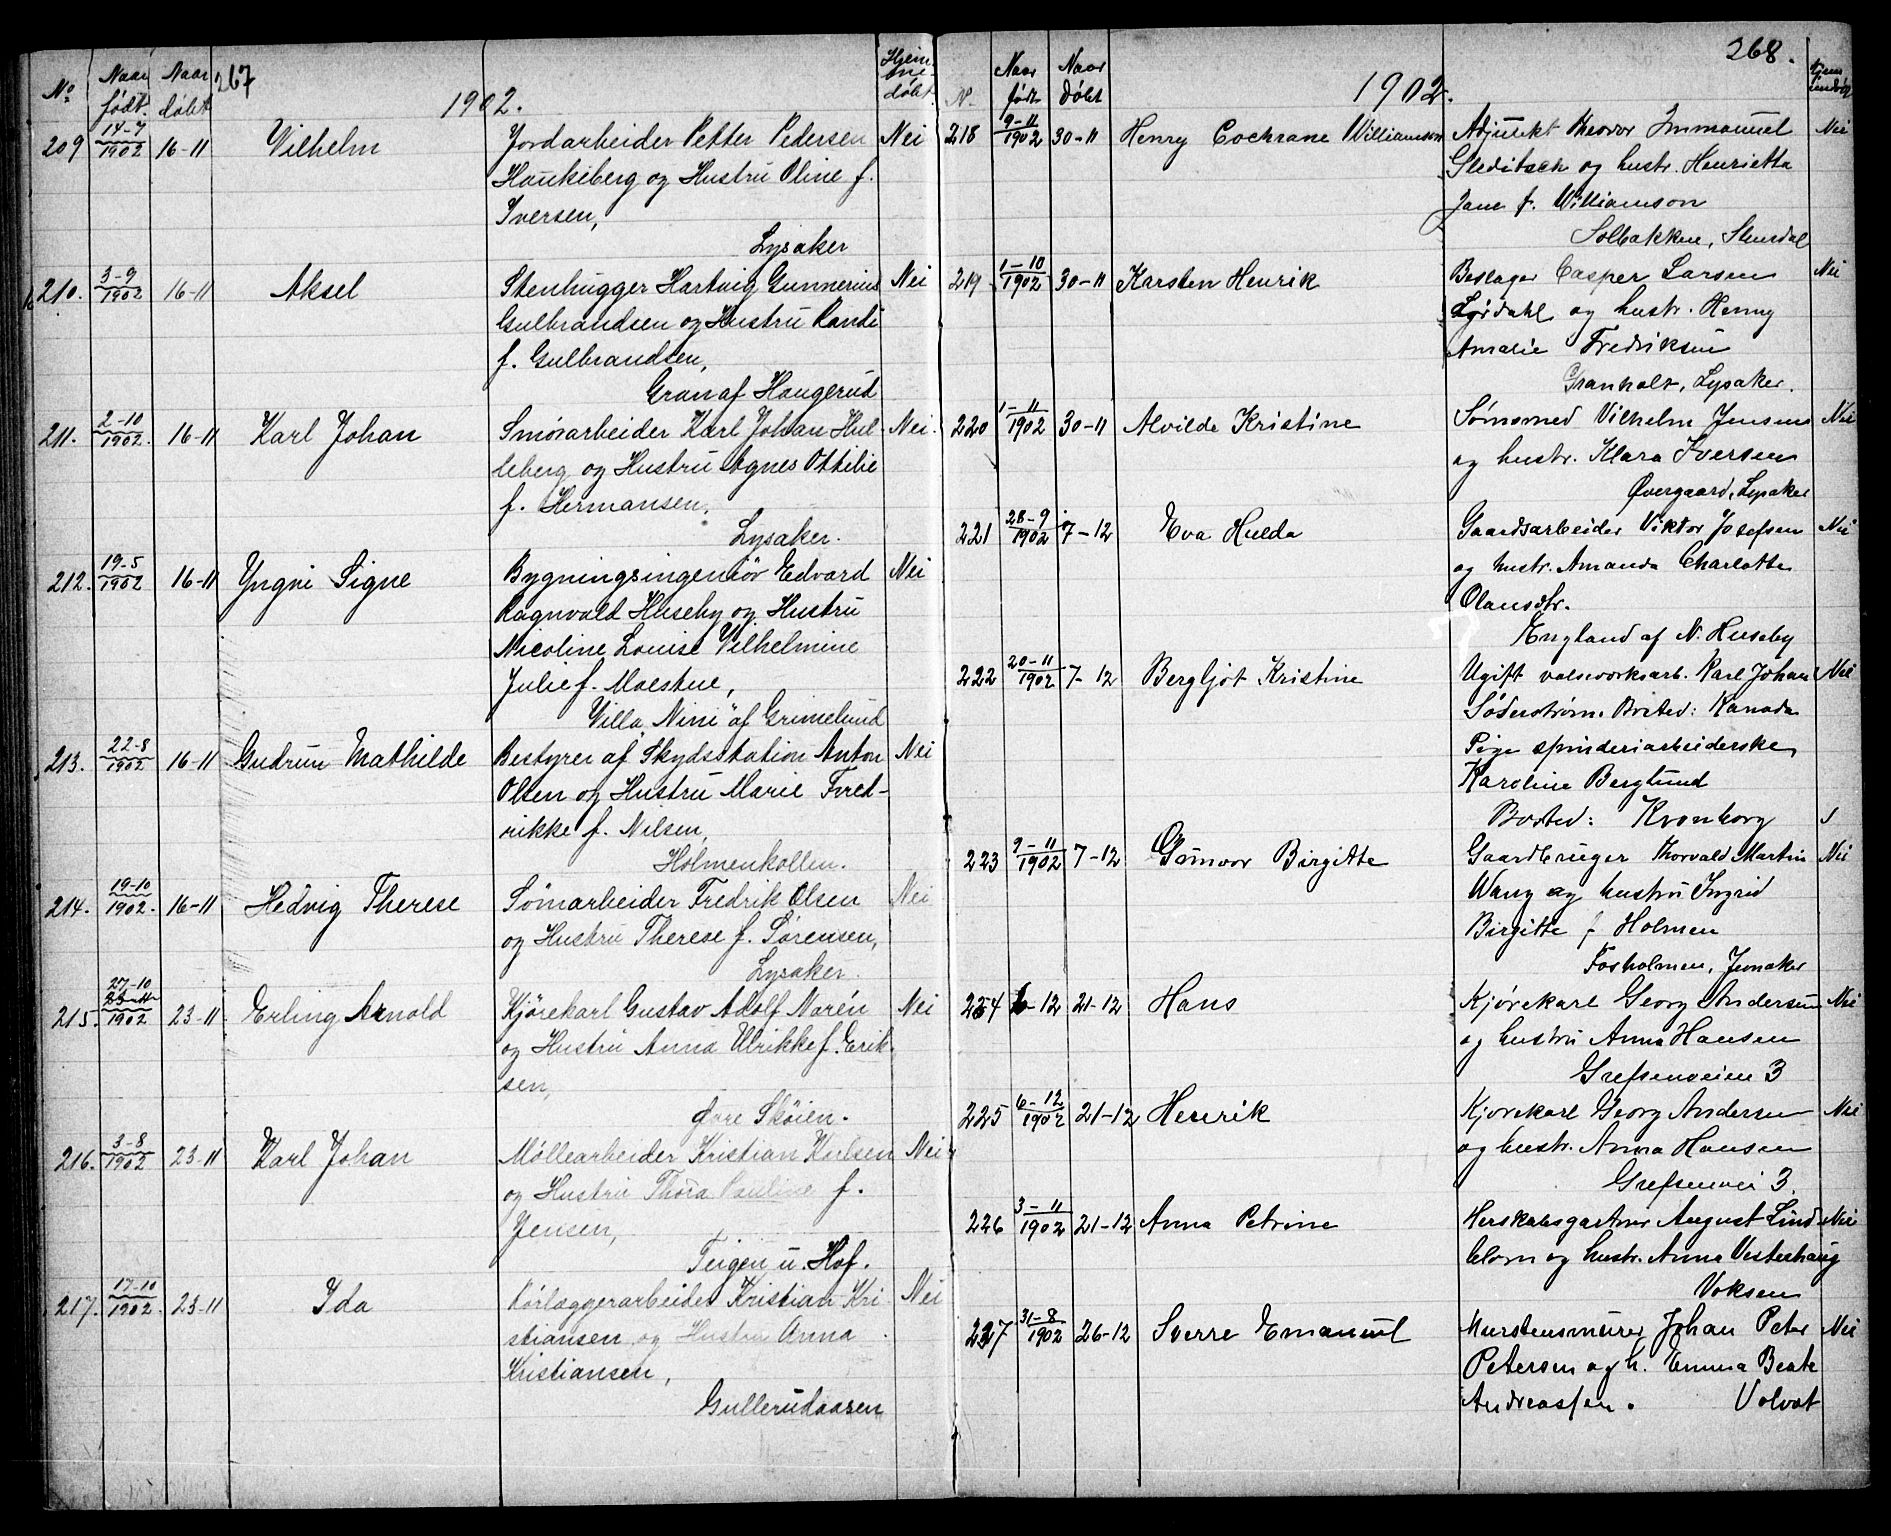 267
No Naar født. Naar døbt 1902. Hjemmedøbt
209 14-7 1902 16-11 Vilhelm Jordarbeider Petter Pedersen Nei
Haukeberg og Hustru Oline f.
Iversen,
Lysaker
210. 3-9 1902 16-11 Aksel Stenhugger Hartvig Gunnerius Nei
Gulbrandsen og Hustru Randi
f. Gulbrandsen,
Gran af Haugerud
211. 2-10 1902. 16-11 Karl Johan Smørarbeider Karl Johan Hul- Nei.
leberg og Hustru Agnes Ottilie
f. Hermansen,
Lysaker.
212. 19-5 1902 16-11 Yngvi Signe Bygningsingeniør Edvard Nei
Ragnvald Huseby og Hustru
Nicoline Louise Vilhelmine
Julie f. Moestue,
Villa „Nini" af Grimelund
213. 22-8 1902 16-11 Gudrun Mathilde Bestyrer af Skydsstation Anton Nei
Olsen og Hustru Marie Fred-
rikke f. Nilsen,
Holmenkollen.
214. 19-10 1902. 16-11 Hedvig Therese Sømarbeider Fredrik Olsen Nei
og Hustru Therese f. Sørensen,
Lysaker.
215. 27-10 1902 23-11 Erling Arnold Kjørekarl Gustav Adolf Norén Nei
og Hustru Anna Ulrikke f. Erik-
sen,
Øvre Skøien.
216. 3-8 1902 23-11 Karl Johan Møllearbeider Kristian Karlsen Nei
og Hustru Thora Pauline f.
Jensen,
Teigen u. Hof.
217. 17-10 1902. 23-11 Ida Rørlæggerarbeider Kristian Kri- Nei
stiansen og Hustru Anna
Kristiansen,
Gullerudaasen
268.
N. Naar født Naar døbt 1902.
218 9-11 1902 30-11 Henry Cochrane Williamson Adjunkt Theodor Immanuel Nei
Gleditsch og hustr. Henrietta
Jane f. Williamson
Solbakken, Slemdal
219 1-10 1902 30-11 Karsten Henrik Beslager Casper Larsen Nei
Lørdahl og hustr. Henny
Amalie Fredriksen
Granholt, Lysaker.
220 1-11 1902 30-11 Alvilde Kristine Sømsmed Vilhelm Jensen Nei
og hustr. Klara Iversen
Øvergaard, Lysaker
221 28-9 1902 7-12 Eva Hulda Gaardsarbeider Viktor Josefsen Nei
og hustr. Amanda Charlotte
Olansdtr.
England af N. Huseby
222 20-11 1902 7-12 Bergljot Kristine Ugift valseværksarb. Karl Johan Nei
Søderstrøm. Bosted: Kanada
Pige spinderiarbeiderske,
Karoline Berglund
Bosted: Kronborg
223 9-11 1902 7-12 Gunvor Birgitte Gaardbruger Thorvald Martin Nei
Wang og hustru Ingrid
Birgitte f Holmen
Fosholmen, Jevnaker
224 6-12 21-12 Hans Kjørekarl Georg Andersen Nei
og hustru Anna Hansen
Grefsenveien 3
225 6-12 1902 21-12 Henrik Kjørekarl Georg Andersen Nei
og hustr. Anna Hansen
Grefsenvei 3.
226 3-11 1902 21-12 Anna Petrine Herskabsgartner August Lind Nei
blom og hustr. Anna Vesterhaug
Voksen
227 31-8 1902 26-12 Sverre Emanuel Murstensmurer Johan Peter Nei
Petersen og h. Emma Beate
Andreassen. Volvat